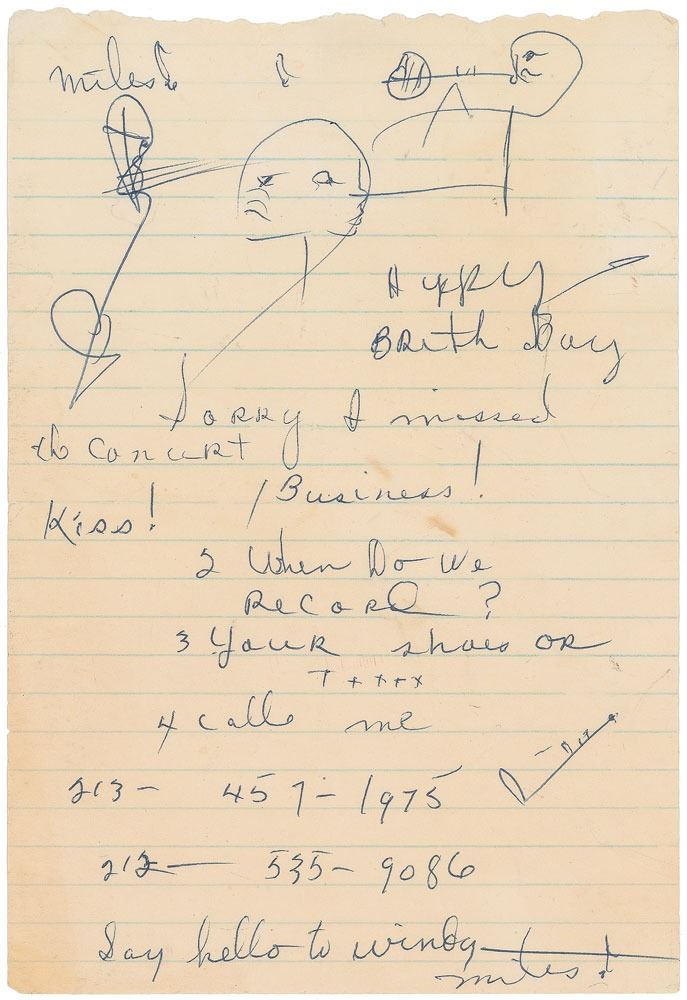 miles!
Happy
BRith Day
Sorry I missed
the ConceRt
Kiss!
1 Business!
2 When Do We
RecoRd ?
3 YouR shoes OR
T + + + x
4 calls me
213 - 457 - 1975
212 - 535 - 9086
Say hello to windy
miles!